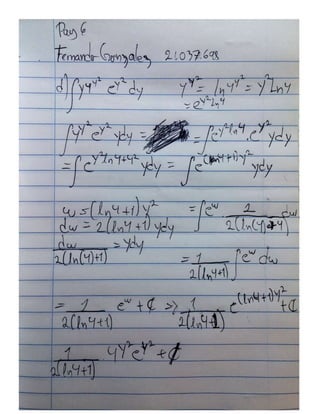 Pag 6
Fernando Gonzalez 21037698
d) ∫ y 4^y² e^y² dy    4^y² = ln 4^y² = y² ln 4
= e^y² ln 4
∫ 4^y² e^y² y dy = = ∫ e^y² ln 4 . e^y² y dy
= ∫ e^y² ln 4 + y² y dy = ∫ e^(ln 4 + 1) y² y dy
w = (ln 4 + 1) y²    = ∫ e^w 1/2(ln(4)+1) dw
dw = 2(ln 4 + 1) y dy
dw/2(ln(4)+1) = y dy    = 1/2(ln 4 + 1) ∫ e^w dw
= 1/2(ln 4 + 1) e^w + C => 1/2(ln 4 + 1) e^(ln 4 + 1) y² + C
1/2(ln 4 + 1) 4^y² e^y² + C